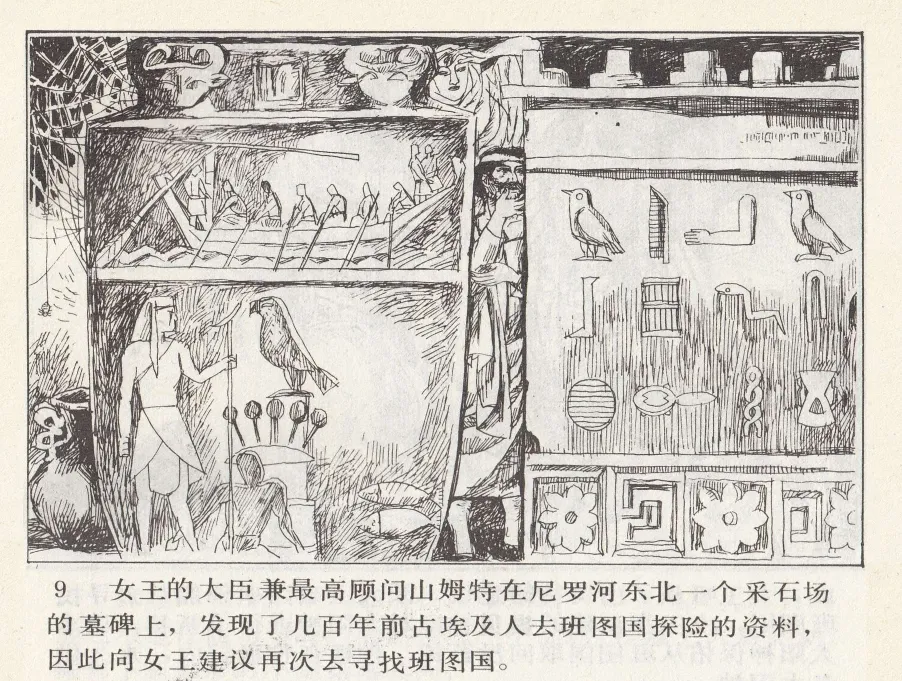 9 女王的大臣兼最高顾问山姆特在尼罗河东北一个采石场
的墓碑上，发现了几百年前古埃及人去班图国探险的资料，
因此向女王建议再次去寻找班图国。